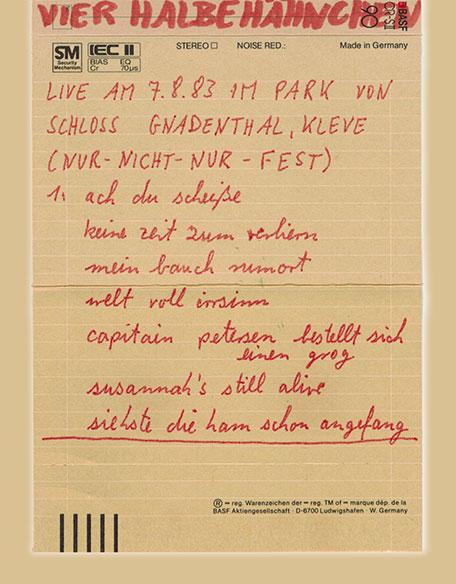 VIER HALBE HÄHNCHEN
BASF
CR-SII
90
SM
Security
Mechanism.
IEC II
BIAS EQ
Cr 70µs
STEREO □ NOISE RED.: Made in Germany
LIVE AM 7.8.83 IM PARK VON
SCHLOSS GNADENTHAL, KLEVE
(NUR-NICHT-NUR-FEST)
1: ach du scheiße
keine zeit zum verliern
mein bauch rumort
welt voll irrsinn
capitain petersen bestellt sich
einen grog
susannah's still alive
siehste die ham schon angefang
® = reg. Warenzeichen der = reg. TM of = marque dép. de la
BASF Aktiengesellschaft · D-6700 Ludwigshafen · W. Germany